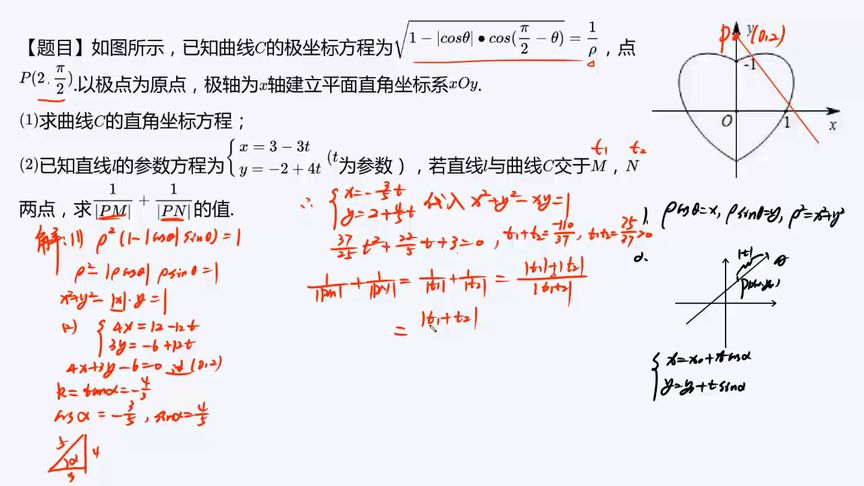 【题目】如图所示，已知曲线C的极坐标方程为√(1-|cosθ|•cos(π/2-θ))=1/ρ，点
P(2,π/2).以极点为原点，极轴为x轴建立平面直角坐标系xOy.
(1)求曲线C的直角坐标方程；
(2)已知直线l的参数方程为{x=3-3t y=-2+4t (t为参数），若直线l与曲线C交于M，N
两点，求1/|PM|+1/|PN|的值.
t₁ t₂
P (0,2)
y
-1
O
1
x
解:(1) ρ²(1-|cosθ|sinθ)=1
ρ²-|ρcosθ|ρsinθ=1
x²+y²-|x|·y=1
(2) {4x=12-12t
3y=-6+12t
4x+3y-6=0 过(0,2)
k=tanα=-4/3
cosα=-3/5, sinα=4/5
5 α 4
3
∴ {x=-3/5t
y=2+4/5t 代入 x²+y²-xy=1
37/25t²+22/5t+3=0, t₁+t₂=-110/37, t₁t₂=75/37>0
1/|PM|+1/|PN|=1/|t₁|+1/|t₂|=|t₁|+|t₂|/|t₁t₂|
=|t₁+t₂|
1. ρcosθ=x, ρsinθ=y, ρ²=x²+y²
2.
|t|
P(x₀,y₀)
{x=x₀+tcosα
y=y₀+tsinα